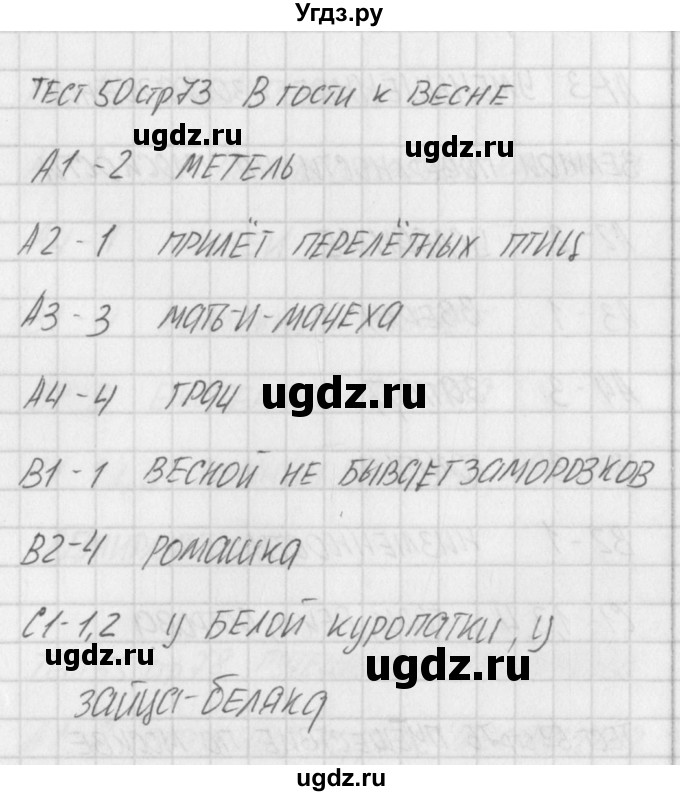 Угдз.ру
Тест 50 стр 73 В гости к весне
ugdz.ru
ugdz.ru
А1 - 2 метель
А2 - 1 прилёт перелётных птиц
А3 - 3 мать-и-мачеха
А4 - 4 грач
ugdz.ru
В1 - 1 весной не бывает заморозков
В2-4 ромашка
С1-1,2 у белой куропатки, у
ugdz.ru
ugdz.ru
зайца-беляка
ugdz.ru